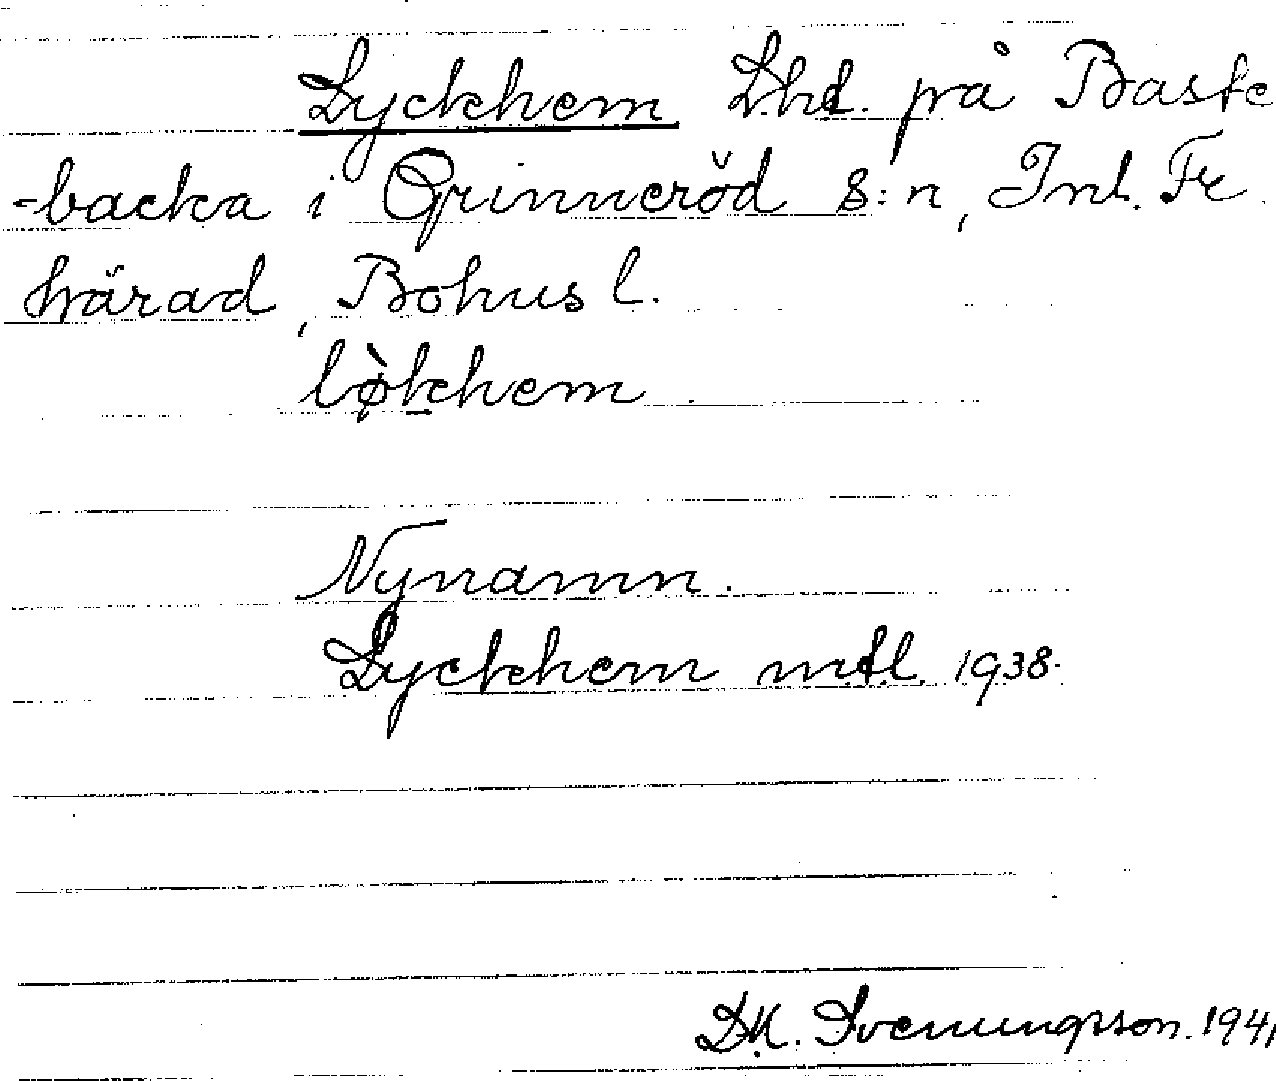 Lyckhem Lht. på Baste
-backa i Grinneröd s:n, Inl. Fr.
härad, Bohus l.
lø̀khem
Nynamn.
Lyckhem mtl. 1938.
D.M. Svenungsson. 1941